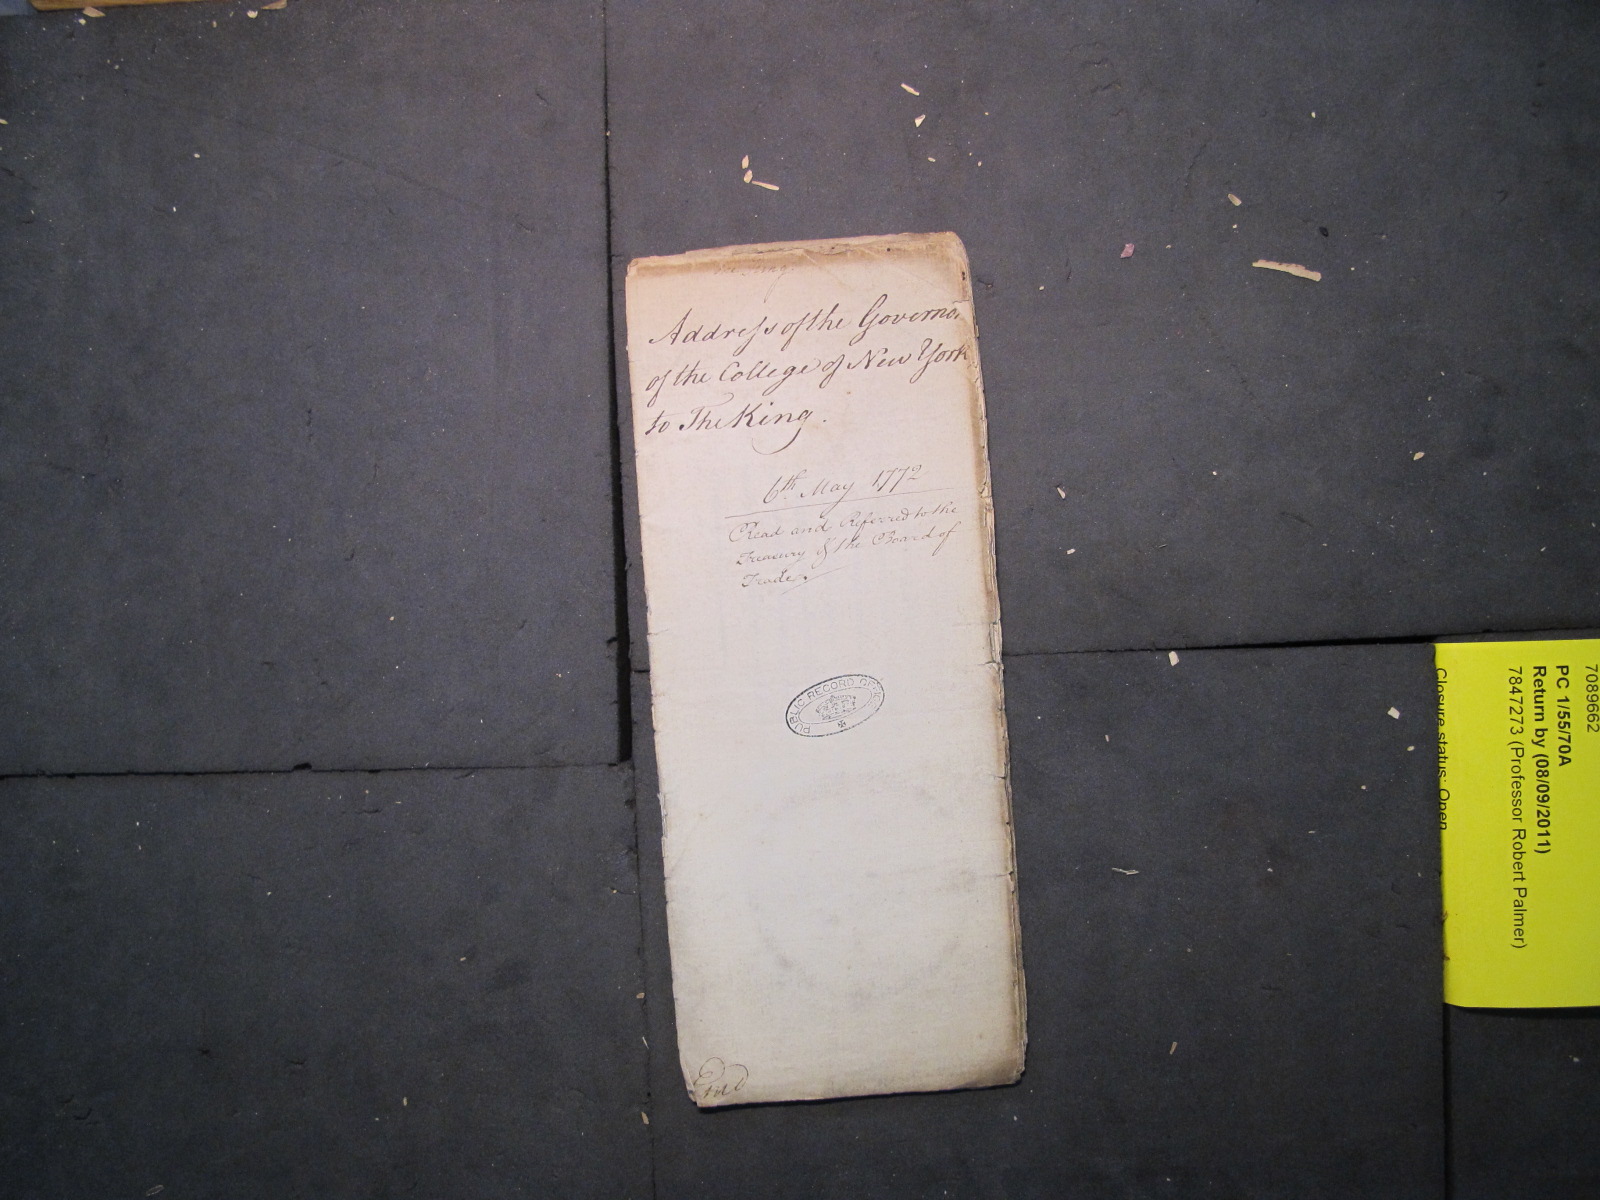 Address of the Governo
of the College of New York
to The King.
6th. May 1772
Read and Referred to the
Treasury & the Board of
Trade.
PUBLIC RECORD OFFICE
7089662
PC 1/55/70A
Return by (08/09/2011)
7847273 (Professor Robert Palmer)
Closure status: Open